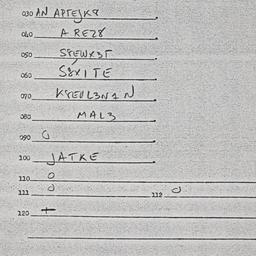 030 AN APTEJK8
040 A REZ8
050 S8EWX3T
060 S8XITE
070 K8EUL3N1N
080 MAL3
090 O
100 JATKE
110 O
111 O 112 O
120 +